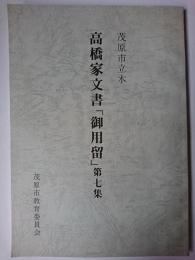 茂原市立木
高橋家文書「御用留」第七集
茂原市教育委員会